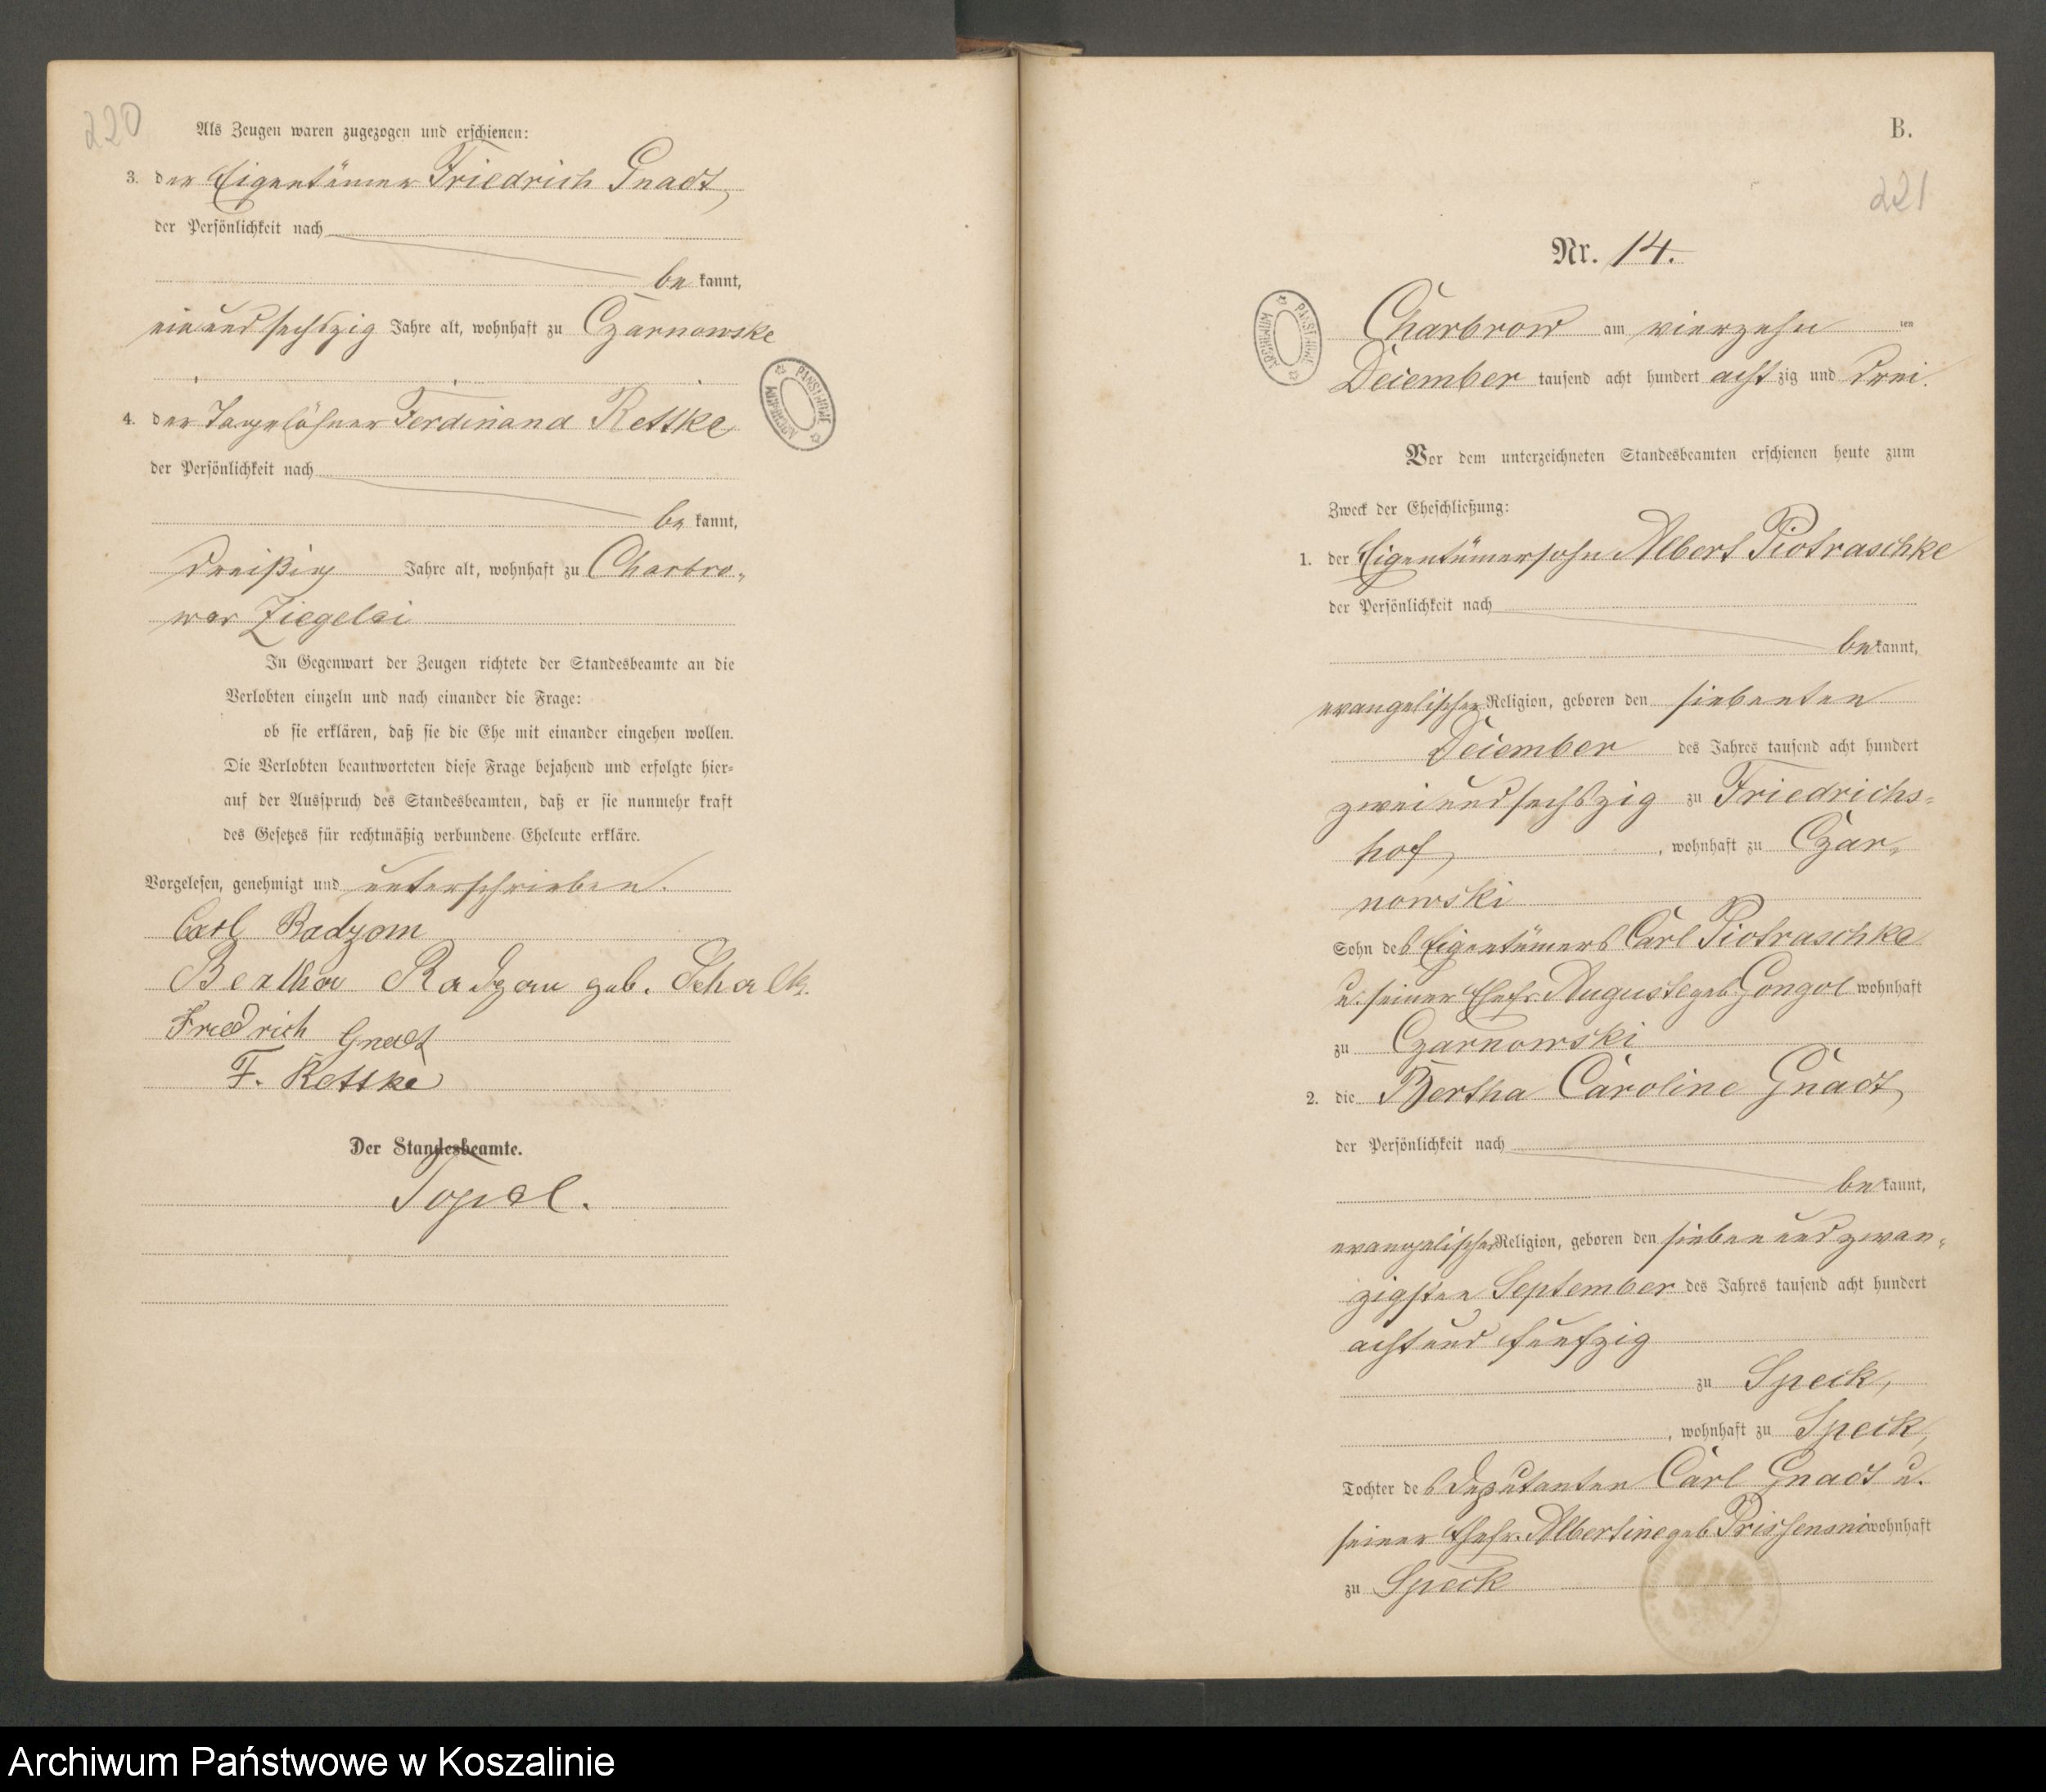 220
Als Zeugen waren zugezogen und erschienen:
3. der Eigentümer Friedrich Gnadt,
der Persönlichkeit nach
be kannt,
ein und sechszig Jahre alt, wohnhaft zu Czarnowske
4. der Tagelöhner Ferdinand Rettke
der Persönlichkeit nach
be kannt,
dreißig Jahre alt, wohnhaft zu Charbro-
wer Ziegelei
In Gegenwart der Zeugen richtete der Standesbeamte an die
Verlobten einzeln und nach einander die Frage:
ob sie erklären, daß sie die Ehe mit einander eingehen wollen.
Die Verlobten beantworteten diese Frage bejahend und erfolgte hier-
auf der Ausspruch des Standesbeamten, daß er sie nunmehr kraft
des Gesetzes für rechtmäßig verbundene Eheleute erkläre.
Vorgelesen, genehmigt und unterschrieben.
Carl Radzom
Bertha Radzom geb. Schalk.
Friedrich Gnadt
F. Rettke
Der Standesbeamte.
B.
221
Nr. 14.
Charbrow am vierzehn ten
December tausend acht hundert acht zig und drei.
Vor dem unterzeichneten Standesbeamten erschienen heute zum
Zweck der Eheschließung:
1. der Eigentümersohn Albert Piotraschke
der Persönlichkeit nach
be kannt,
evangelischer Religion, geboren den siebenten
December des Jahres tausend acht hundert
zwei und sechszig zu Friedrichs-
hof, wohnhaft zu Czar-
nowski
Sohn des Eigentümers Carl Piotraschke
u. seiner Ehefr. Auguste geb. Gongol wohnhaft
zu Czarnowski
2. die Bertha Caroline Gnadt,
der Persönlichkeit nach
be kannt,
evangelischer Religion, geboren den sieben und zwan-
zigsten September des Jahres tausend acht hundert
acht und fünfzig
zu Speck,
, wohnhaft zu Speck,
Tochter des Deputanten Carl Gnadt u.
seiner Ehefr. Albertine geb. wohnhaft
zu Speck
Archiwum Państwowe w Koszalinie